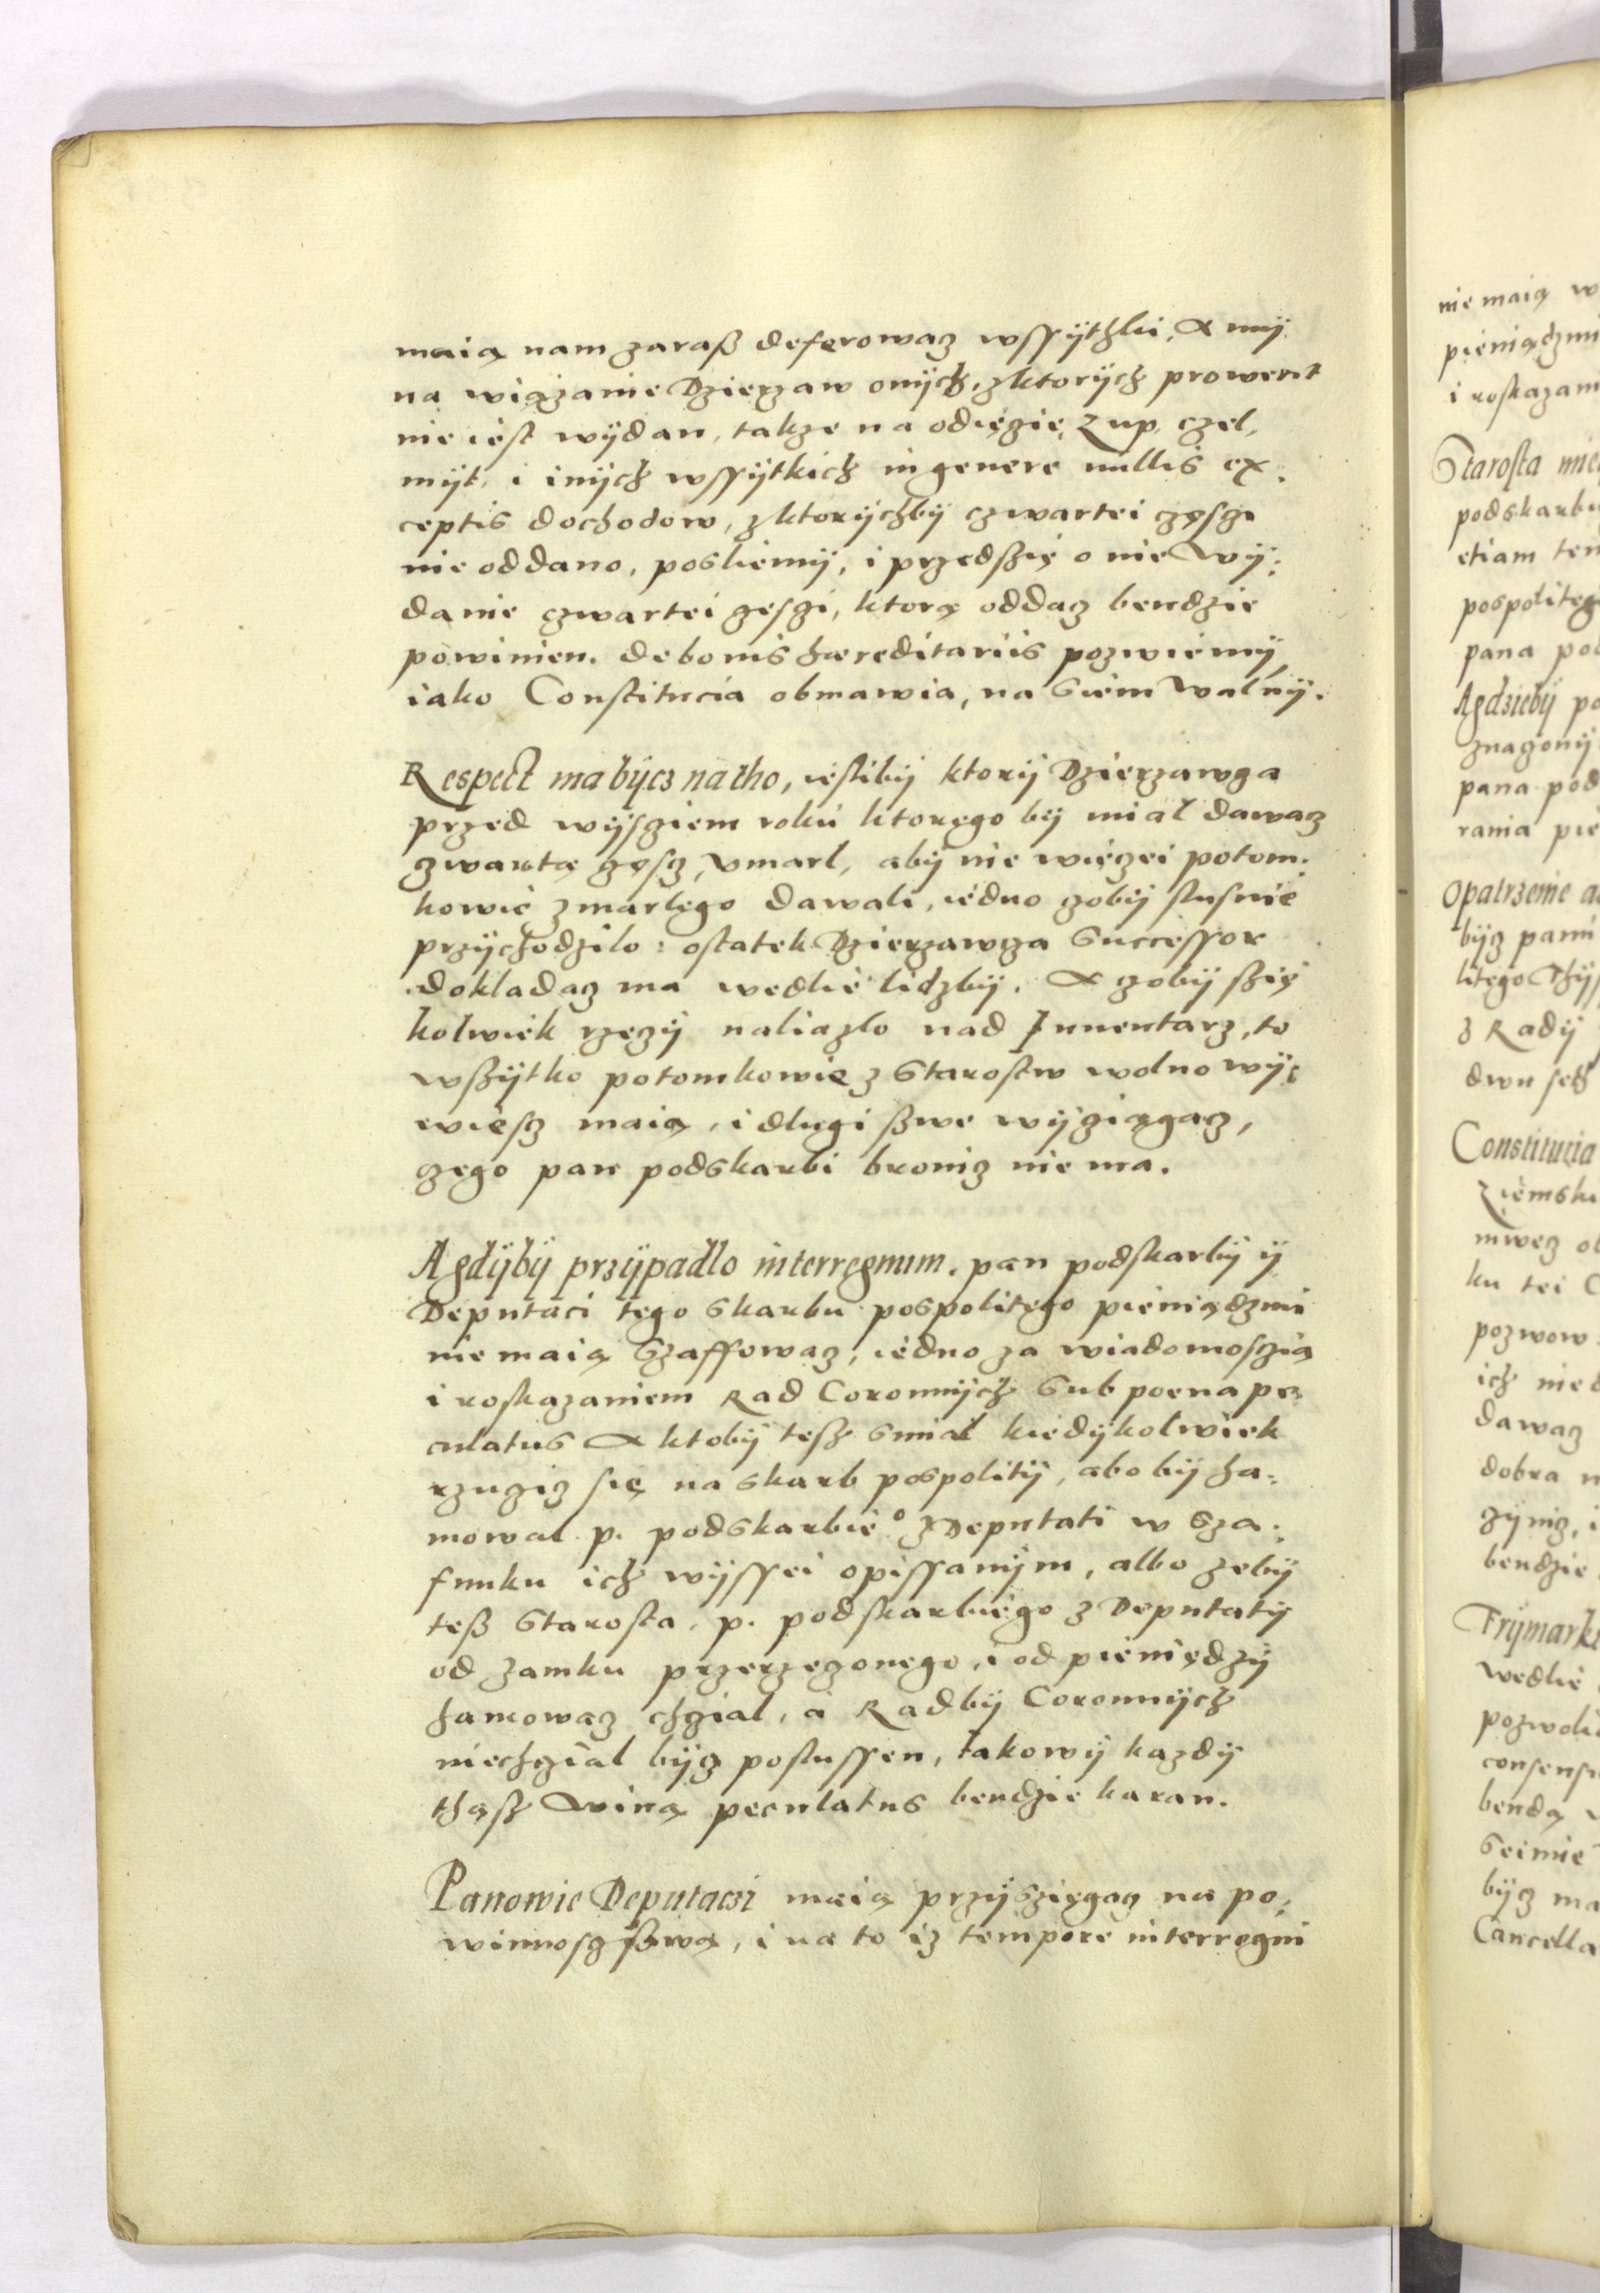 maią nam zaraß deferowacz wssythki, A my
na wiązanie Dzierzaw onych, z ktorych prowent
nie iest wydan, takze na odięcie Zup, czel,
myt, i inych wssytkich in genere nullis ex:
ceptis dochodow, z ktorychby czwartei częsci
nie oddano, posliemy, i przedszię o nie wy:
danie czwartei częsci, ktorą oddacz bendzie
powinien. de bonis hæreditariis pozwiemy
iako Constitucia obmawia, na Siem walny.
Respect ma bycz na tho, iestiby ktory Dzierzawca
przed wysciem roku ktorego by mial dawacz
czwartą częscz, vmarl, aby nie więcei potom:
kowie zmarlego dawali, iedno coby slusnie
przychodzilo: ostatek Dzierzawca Successor
dokladacz ma wedlie lidzby. A coby szię
kolwiek rzeczy naliazlo nad Inuentarz, to
wszytko potomkowie z Starostw wolno wy:
wiescz maią, i dlugi swe wyciągacz,
czego pan podskarbi bronicz nie ma.
A gdyby przypadlo interregnum. pan podskarby y
Deputaci tego skarbu pospolitego pieniądzmi
nie maią Szaffowacz, iedno za wiadomoscią
i roskazaniem Rad Coronnych sub poena pe:
culatus A ktoby tesz smial kiedykolwiek
rzucicz się na skarb pospolity, abo by ha:
mowal p. podskarbie° z Deputati w sza:
funku ich wyssei opissanym, albo zeby
teß Starosta, p. podskarbiego z Deputaty
od zamku przerzeczonego, i od pieniędzy
hamowacz chcial, a Rad by Coronnych
niechcial bycz poslussen, takowy kazdy
thąsz winą peculatus bendzie karan.
Panowie Deputaczi maią przysziegacz na po:
winnoscz swą, i na to iz tempore interregni
nie maią w
pieniądzmi
i roskazani
Starosta
podskarbi
etiam
pospolitego
pana
A gdzieby
pana pod
rania
Opatrzenie
bycz panu
litego
z Rady
Constitucia
Ziemski
ku tei
pozwow
ich
dawacz
dobra
bendzie
Frymarki
wedlie
bendą
Seimie
bycz ma
Cancella